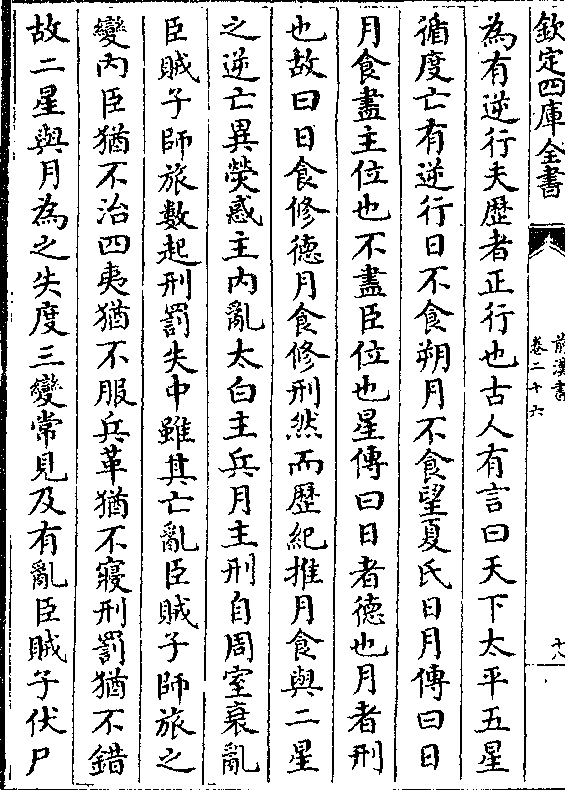 欽定四庫全書
前漢書
卷二十六
十八
為有逆行夫歴者正行也古人有言曰天下太平五星
循度亡有逆行日不食朔月不食望夏氏日月傳曰日
月食盡主位也不盡臣位也星傳曰日者德也月者刑
也故曰日食修德月食修刑然而歴紀推月食與二星
之逆亡異熒惑主内亂太白主兵月主刑自周室衰亂
臣賊子師旅數起刑罰失中雖其亡亂臣賊子師旅之
變内臣猶不治四夷猶不服兵革猶不寢刑罰猶不錯
故二星與月為之失度三變常見及有亂臣賊子伏尸